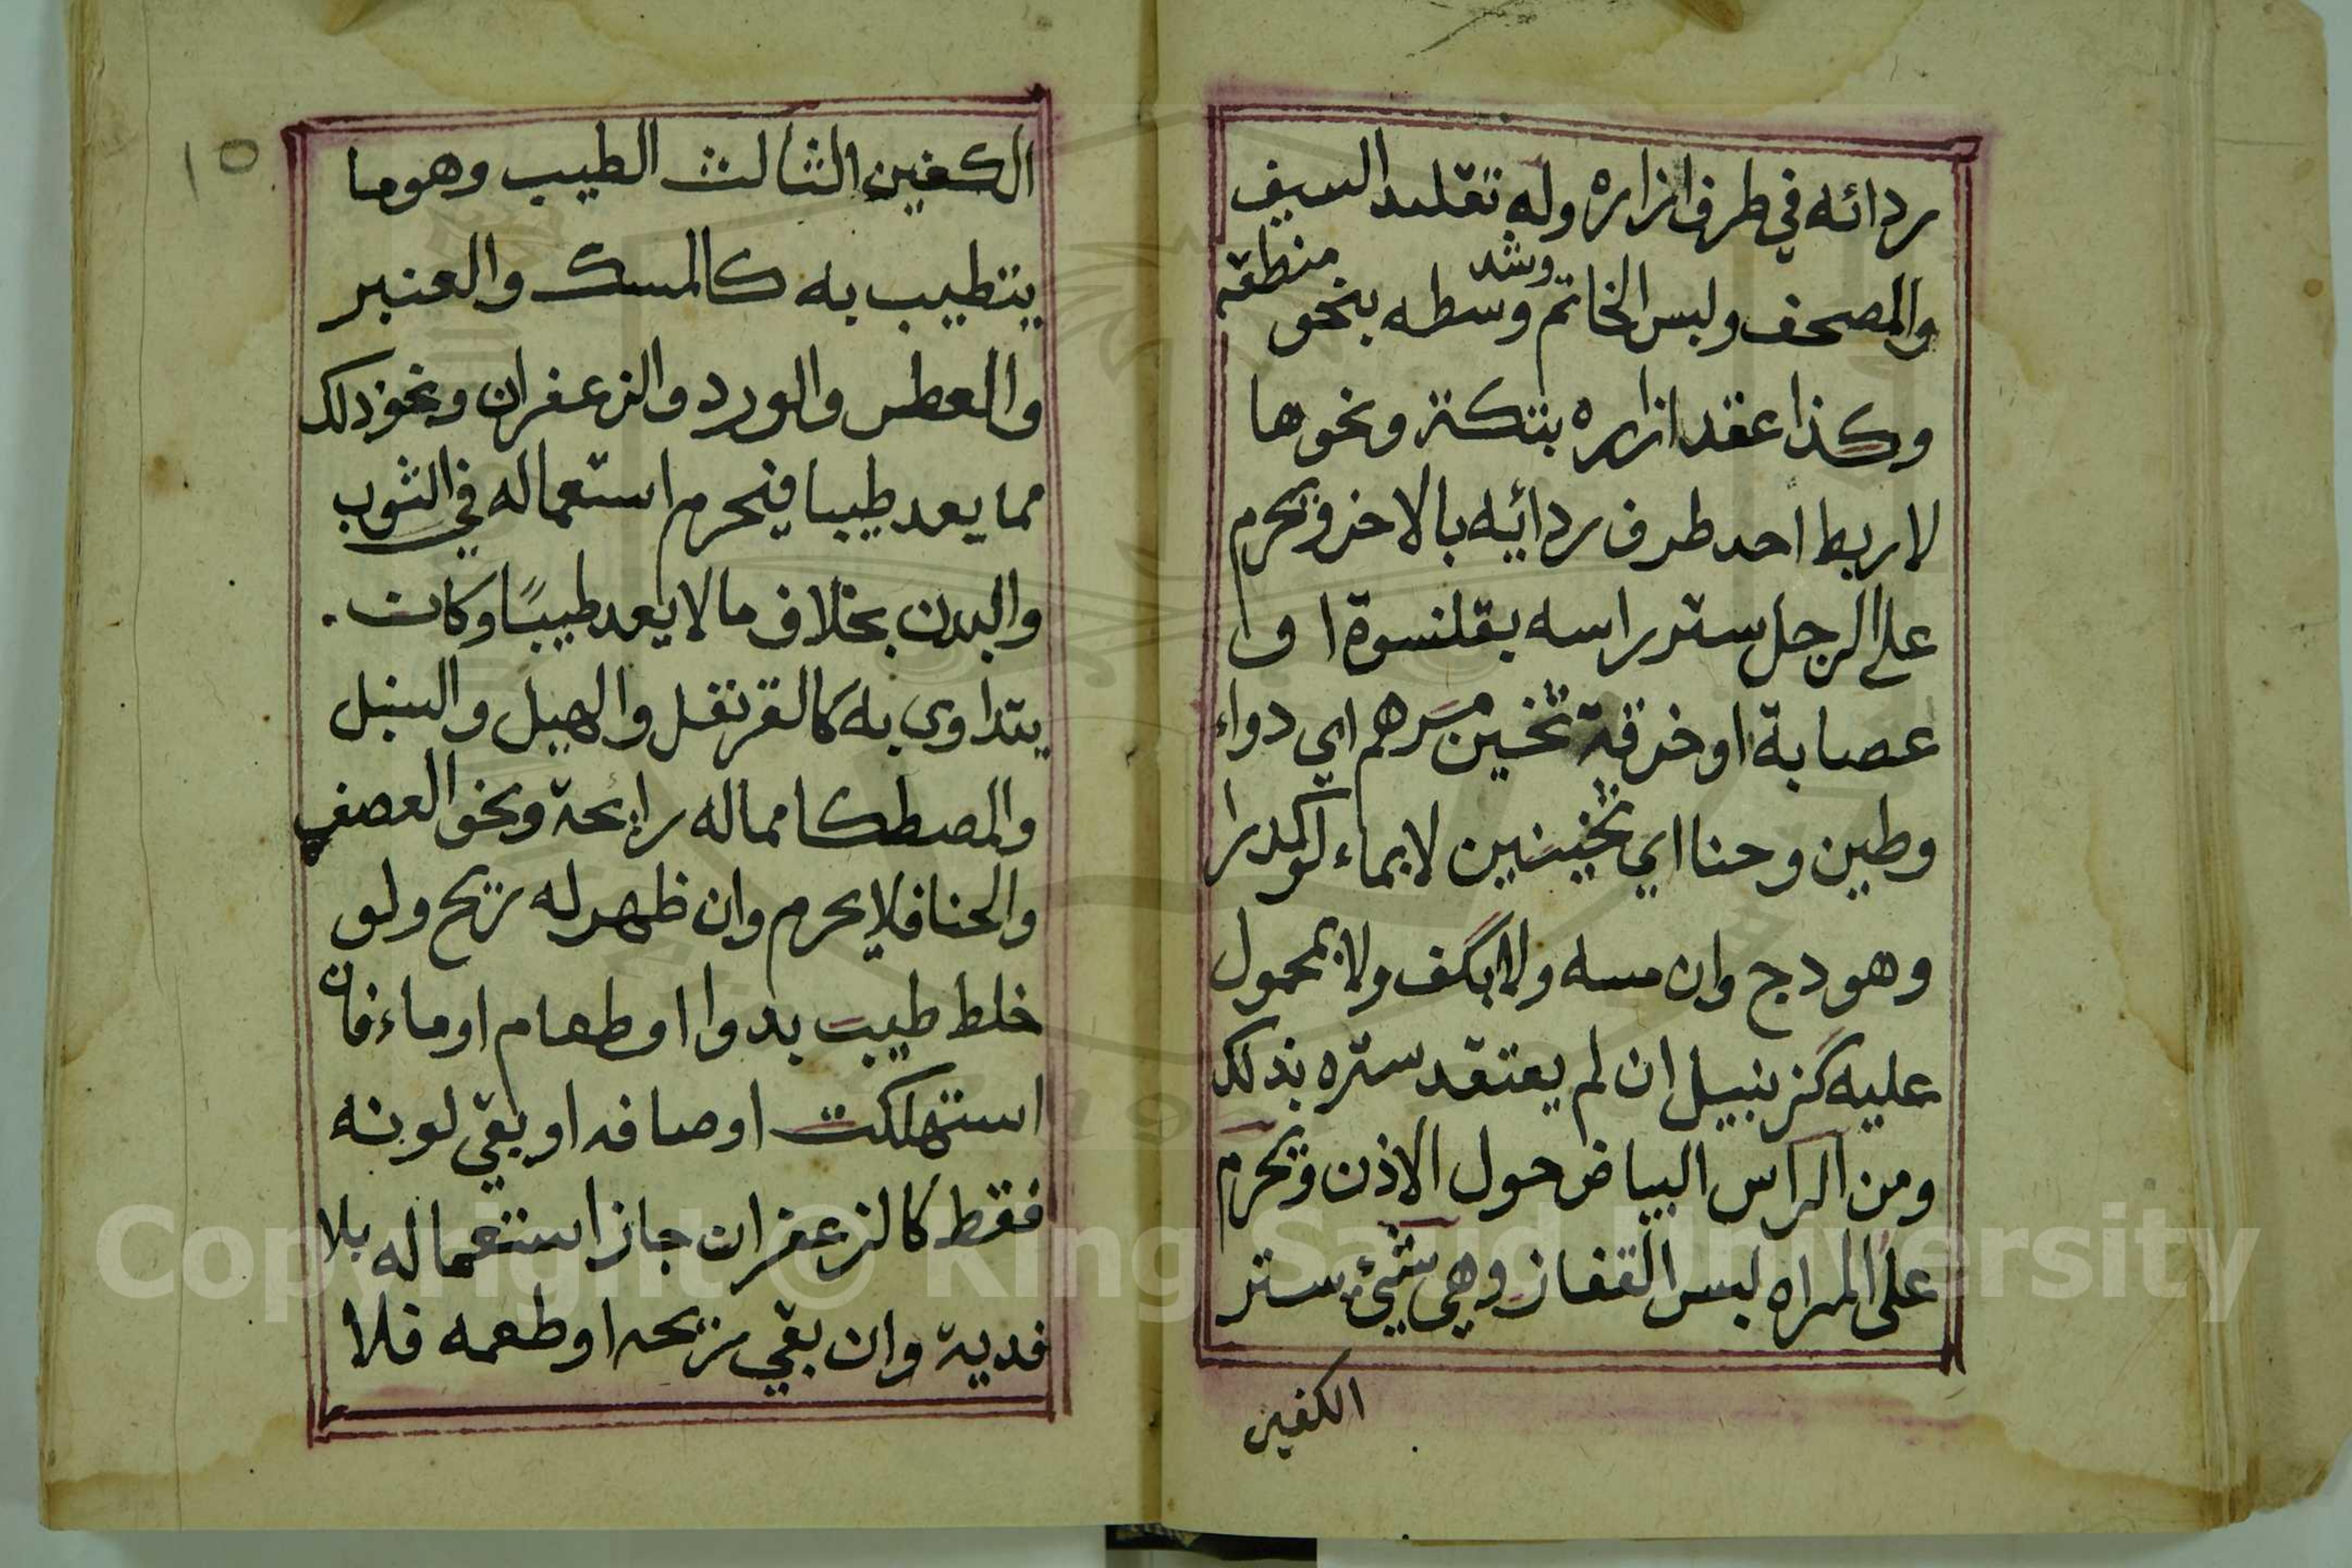 ردائه في طرف ازاره وله تقليد السيف
والمصحف ولبس الخاتم وشد وسطه بنحو منطقة
وكذا عقد ازاره بتكة ونحوها
لا ربط احد طرف ردائيه بالاخر ويحرم
على الرجل ستر راسه بقلنسوة او
عصابة او خرقة ثخين مرهم اي دواء
وطين وحنا اي ثخينين لا بماء لو كدرا
وهودج وان مسه ولا بكف ولا بمحمول
عليه كزنبيل ان لم يعتقد ستره بذلك
ومن الراس البياض حول الاذن ويحرم
على المراه لبس القفاز وهي شيء ستر
الكفين
١٥
الكفين الثالث الطيب وهو ما
يتطيب به كالمسك والعنبر
والعطر والورد والزعفران ونحو ذلك
مما يعد طيبا فيحرم استعماله في الثوب
والبدن بخلاف ما لا يعد طيبًا وكان
يتداوى به كالقرنفل والهيل والسنبل
والمصطكا مما له رايحة ونحو العصفر
والحنا فلا يحرم وان ظهر له ريح ولو
خلط طيب بدوا او طعام او ماء فان
استهلكت اوصافه او بقي لونه
فقط كالزعفران جاز استعماله بلا
فدية وان بقي ريحه او طعمه فلا
Copyright © King Saud University